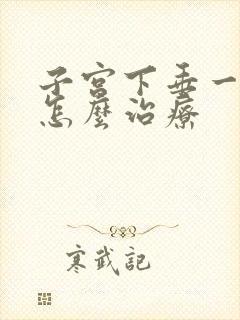 子宮下垂一
怎麼治療
寒武記